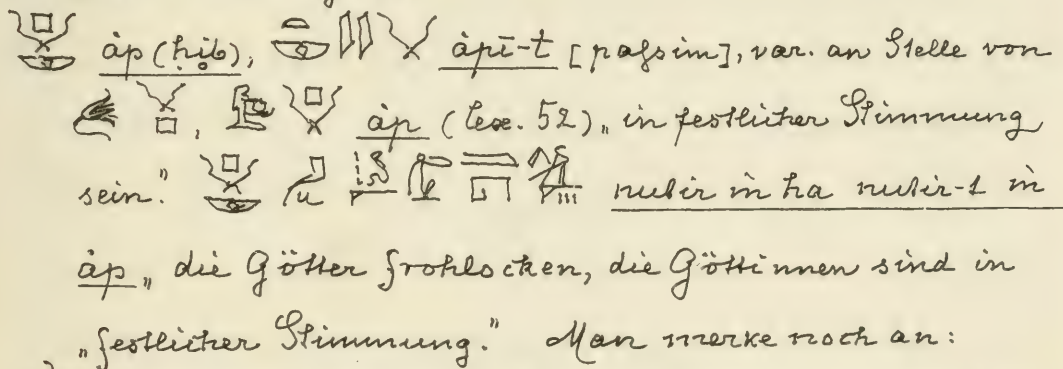 áp (ḥib), ápī-t [passim], var. an Stelle von
áp (lex. 52) „in festlicher Stimmung
sein." nutir in ha nutir-t in
áp „die Götter frohlocken, die Göttinnen sind in
„festlicher Stimmung." Man merke noch an: